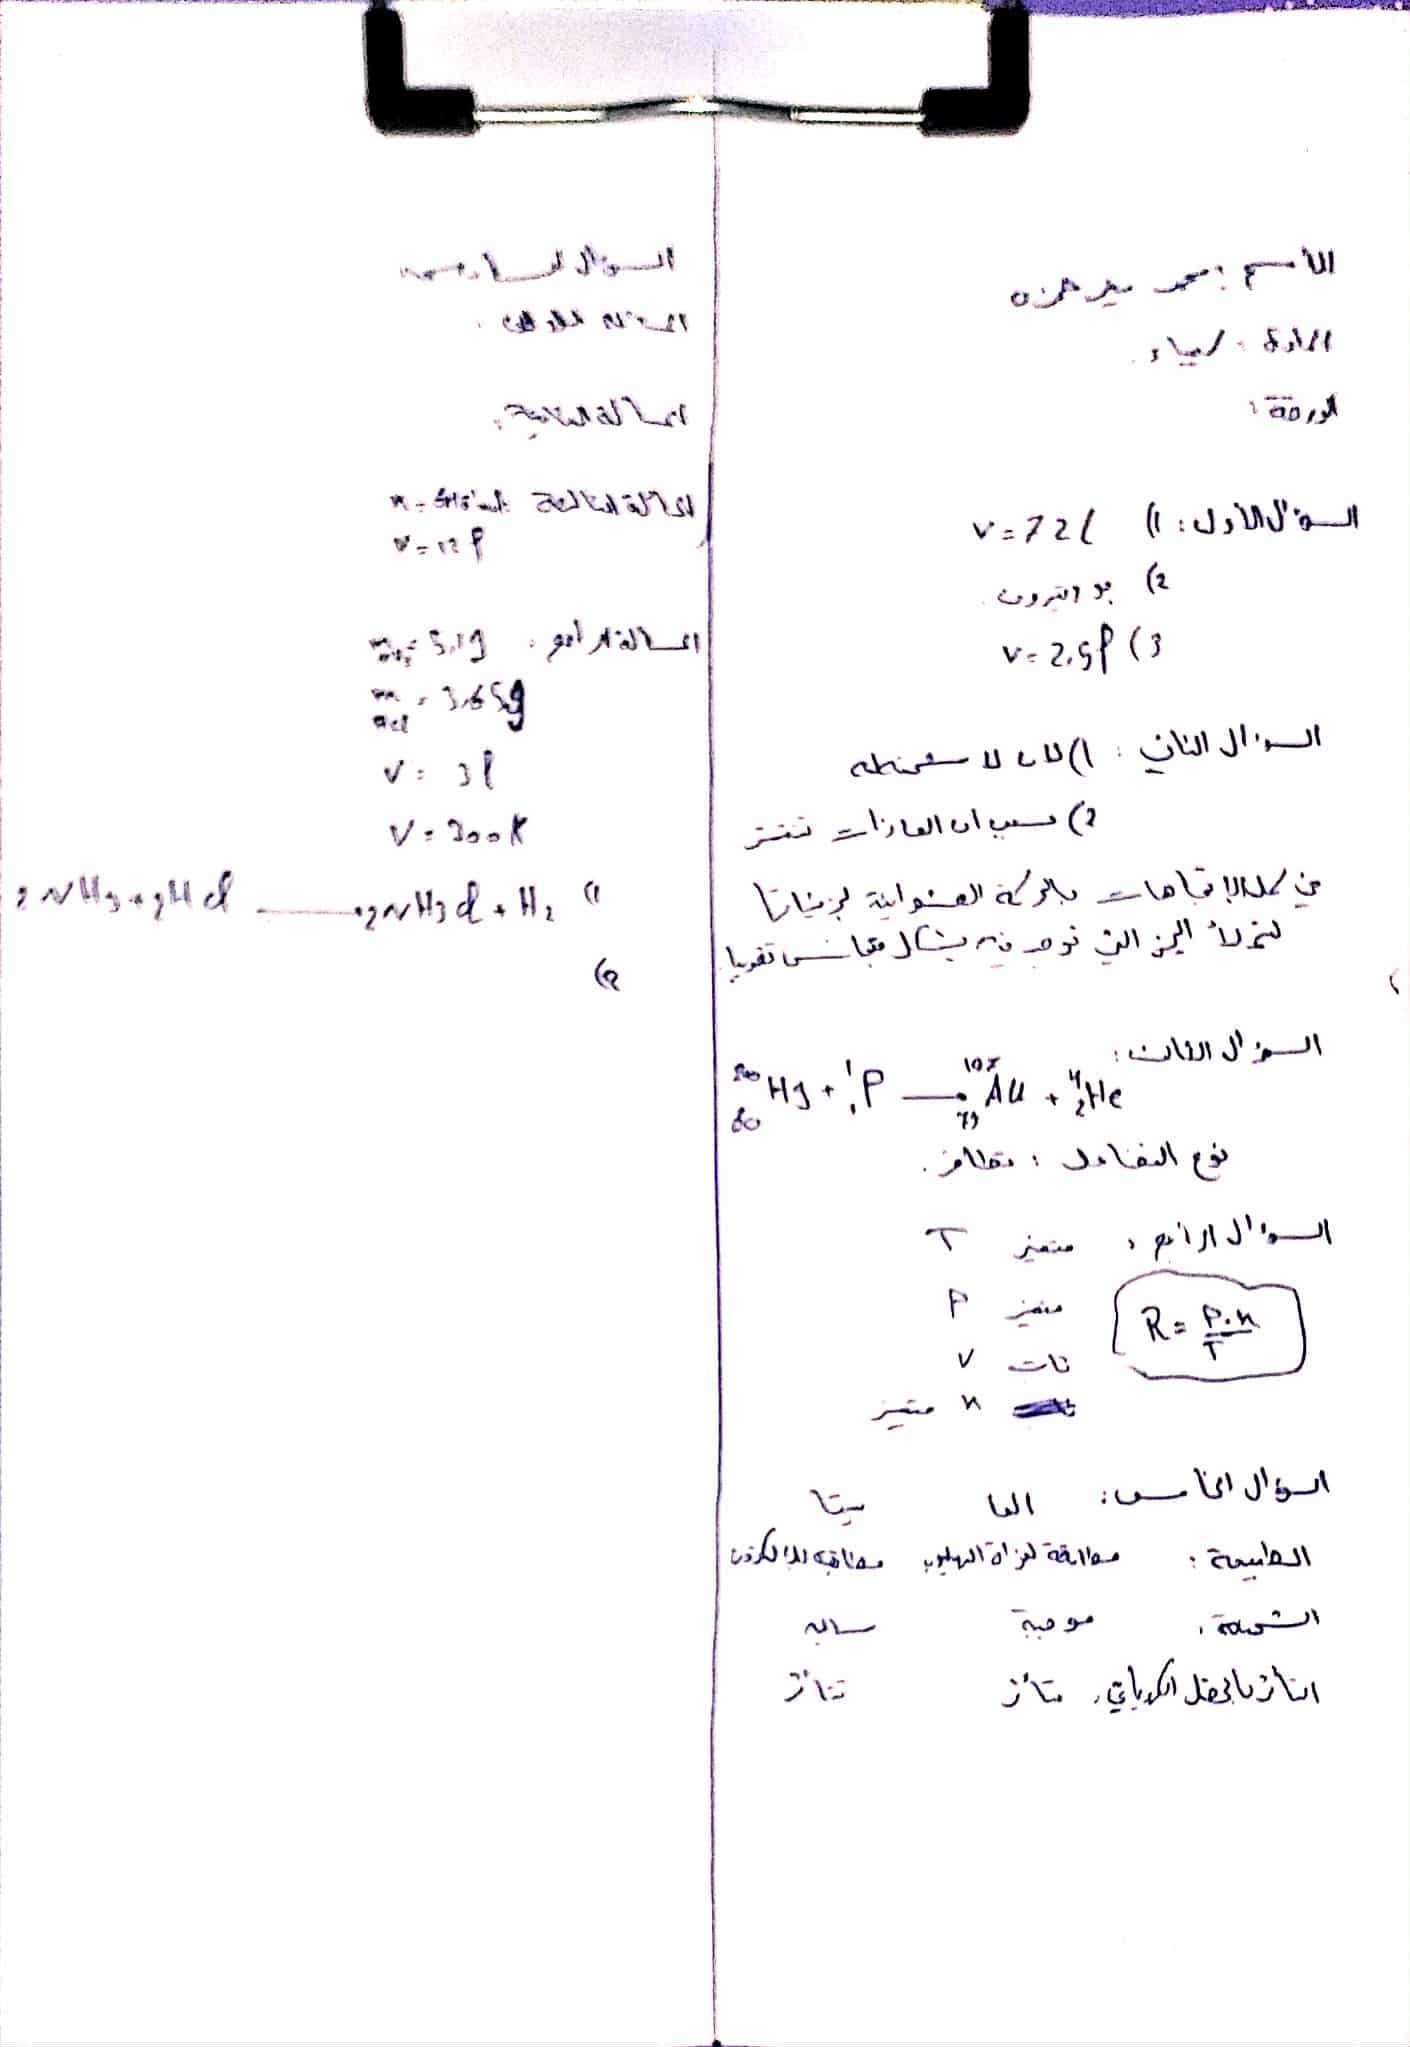 الأسم : محمد حمزه
المادة : كيمياء .
الورقة :
السؤال الأول : 1) V = 72 l
2) بوزيترون .
3) V = 2.5 l
السؤال الثاني : 1) لأن لا
2) بسبب ان الغازات تنتشر
في كل الإتجاهات بالحركة العشوائية لجزيئاتها
لتملأ الحيز الذي توجد فيه بشكل متجانس تقريبا
السؤال الثالث :
²⁰⁰₈₀Hg + ¹₁P → ¹⁹⁷₇₉Au + ⁴₂He
نوع التفاعل : تطافر .
السؤال الرابع : متغير T
متغير P
R = P.n / T
ثابت V
n متغير
السؤال الخامس : الفا بيتا
الطبيعة : مطابقة لنواة الهليوم مطابقه للإلكترون
الشحنة : موجبة سالبه
التأثر بالحقل الكهربائي : تتأثر تتأثر
السؤال السادس
المسألة الأولى :
المسألة الثانية :
المسألة الثالثة
V = 12 l
المسألة الرابعة : m = 5.1g
m HCl = 3.65g
V = 3 l
V = 300K
1) 2NH3 + 2HCl → 2NH3Cl + H2
2)